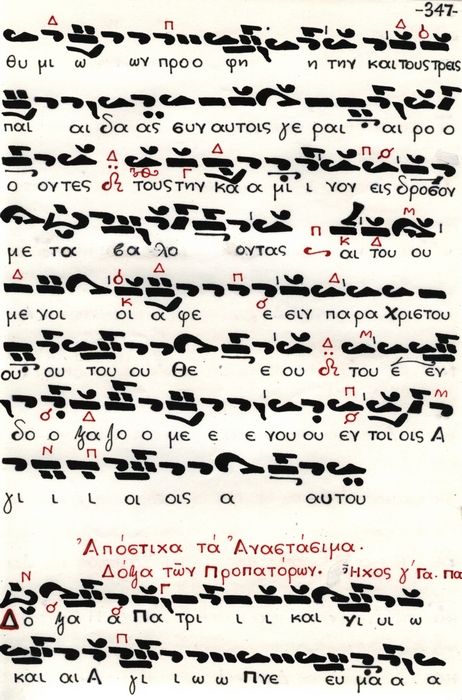 -347-
θυ μι ω ων προ ο φη η την και τους τρεις
παι αι δα ας συν αυτοις γε ραι αι ρο ο
ο οντες τους την κα α μι ι νον εις δροσον
με τα βα λο οντας αι του ου
με νοι οι α φε ε σιν παρα Χριστου
ου ου του ου Θε ε ου του ε εν
δο ο ξα ζο ο με ε ε νου ου εν τοι οις Α
γι ι ι οι οις α αυτου
Ἀπόστιχα τά Ἀναστάσιμα.
Δόξα τῶν Προπατόρων. Ἦχος γ΄ Γα. Πα
Δο ξα α Πα τρι ι ι και γι υι ω
και αι Α γι ι ω ω Πνε ευ μα α α